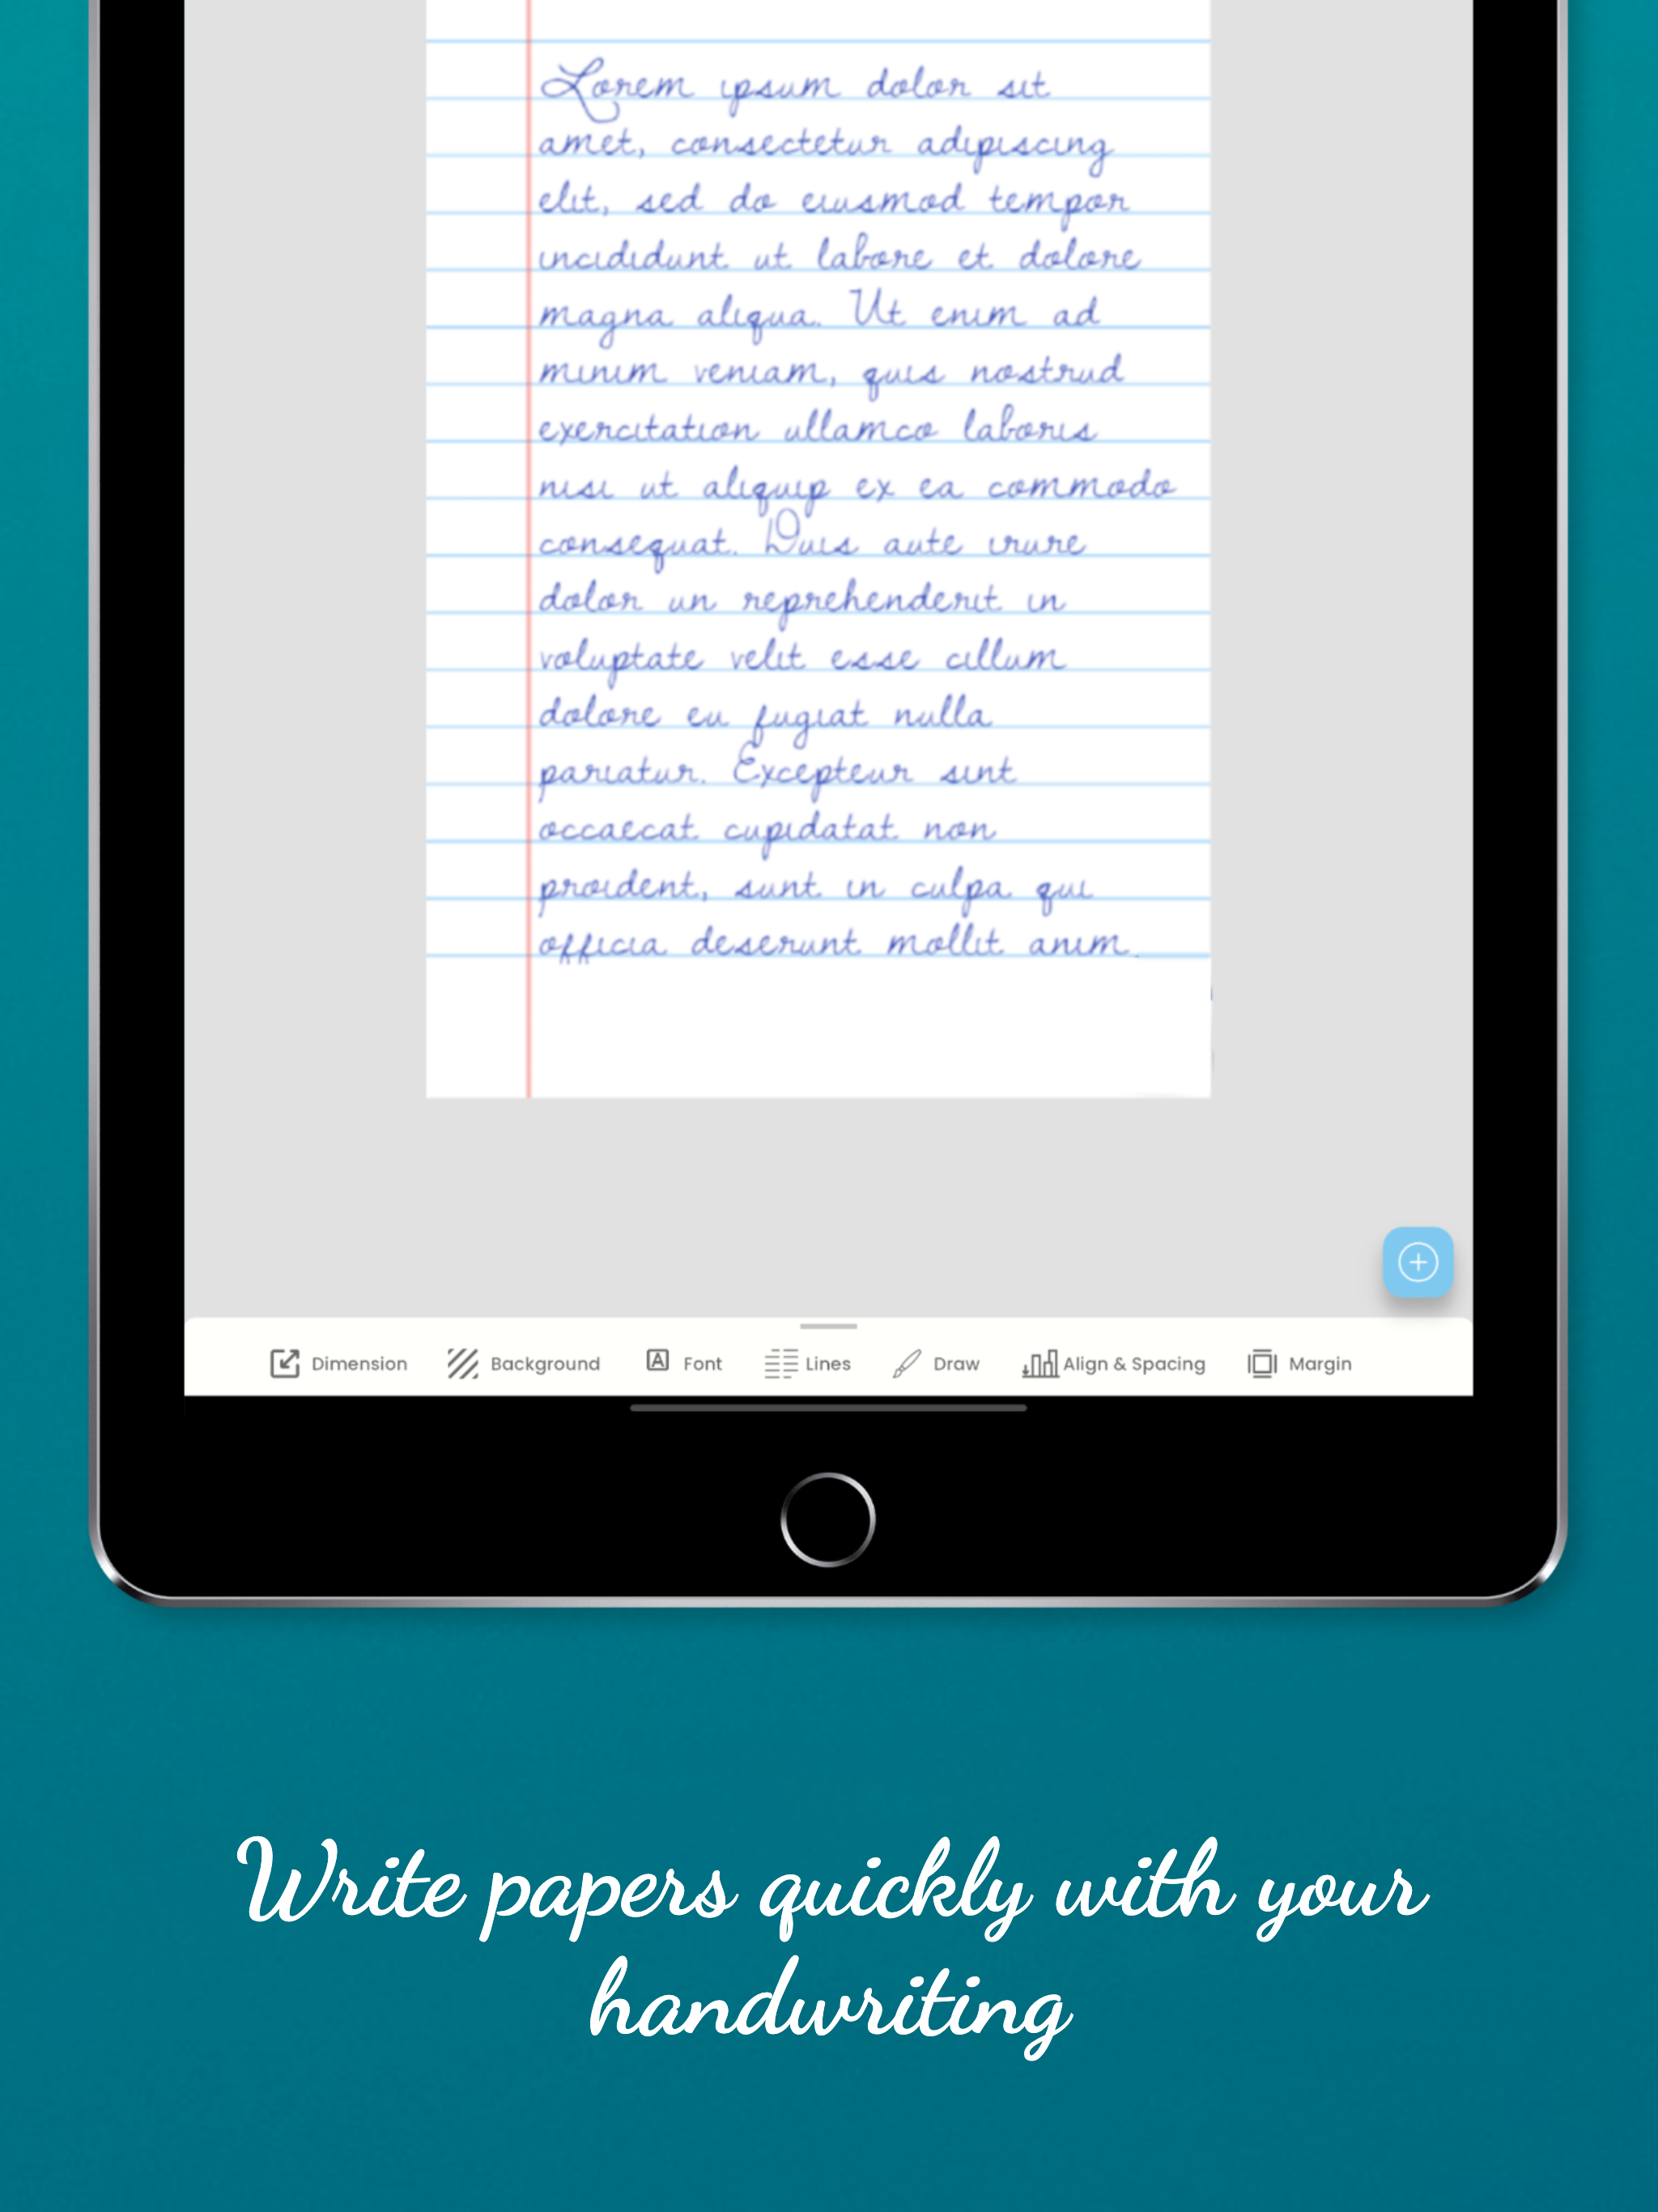 Lorem ipsum dolor sit
amet, consectetur adipiscing
elit, sed do eiusmod tempor
incididunt ut labore et dolore
magna aliqua. Ut enim ad
minim veniam, quis nostrud
exercitation ullamco laboris
nisi ut aliquip ex ea commodo
consequat. Duis aute irure
dolor un reprehenderit in
voluptate velit esse cillum
dolore eu fugiat nulla
pariatur. Excepteur sint
occaecat cupidatat non
proident, sunt in culpa qui
officia deserunt mollit anim.
Dimension Background Font Lines Draw Align & Spacing Margin
Write papers quickly with your
handwriting